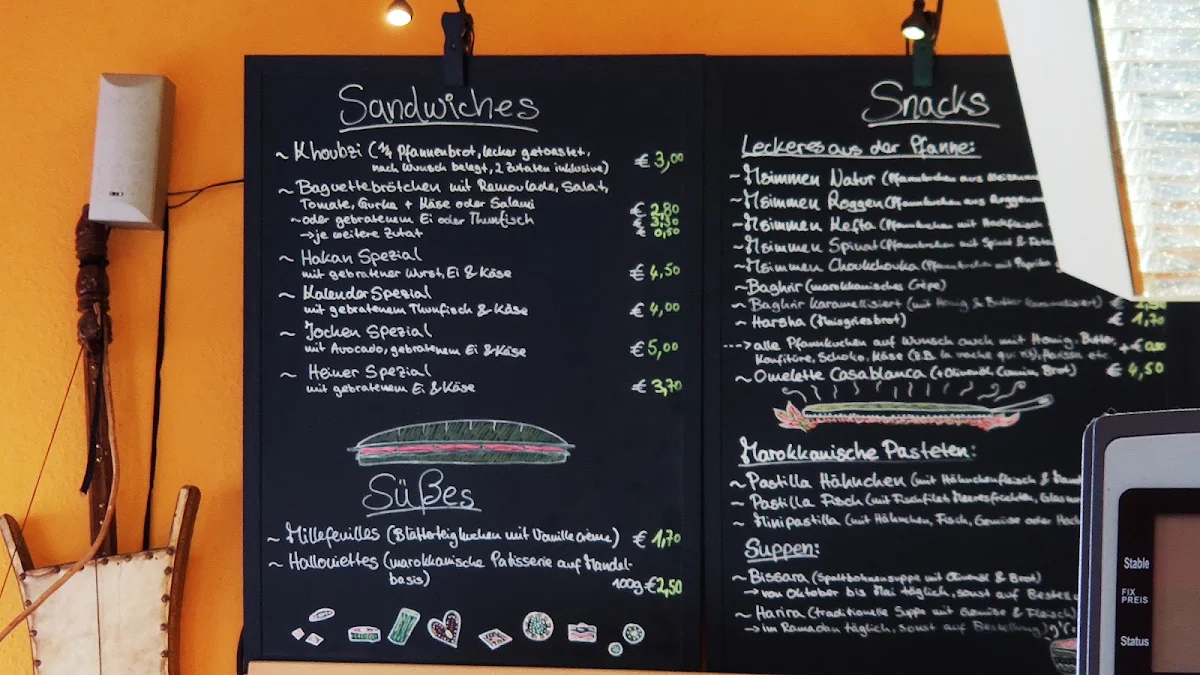 Sandwiches
~ Khoubzi (1/4 Pfannenbrot, lecker getoastet,
nach Wunsch belegt, 2 Zutaten inklusive) € 3,00
~ Baguettebrötchen mit Remoulade, Salat,
Tomate, Gurke + Käse oder Salami € 2,80
~oder gebratenem Ei oder Thunfisch € 3,30
→je weitere Zutat € 0,50
~ Hakan Spezial
mit gebratener Wurst, Ei & Käse € 4,50
~ Kalender Spezial
mit gebratenem Thunfisch & Käse € 4,00
~ Jochen Spezial
mit Avocado, gebratenem Ei & Käse € 5,00
~ Heiner Spezial
mit gebratenem Ei & Käse € 3,70
Süßes
~ Millefeuilles (Blätterteigkuchen mit Vanillecrème) € 1,70
~ Hallouiettes (marokkanische Patisserie auf Mandel-
basis) 100g € 2,50
Snacks
Leckeres aus der Pfanne:
~ Msimmen Natur (Pfannkuchen aus
~ Msimmen Roggen (Pfannkuchen aus
~ Msimmen Kefta (Pfannkuchen mit Hackfleisch
~ Msimmen Spinat (Pfannkuchen mit Spinat &
~ Msimmen Choukchouka (Pfannkuchen mit Paprika
~ Baghrir (marokkanisches Crêpe)
~ Baghrir Karamellisiert (mit Honig & Butter karamellisiert) €
~ Harsha (Maisgriesbrot) € 1,70
---> alle Pfannkuchen auf Wunsch auch mit Honig, Butter,
Konfitüre, Schoko, Käse (z.B. la vache qui rit), etc +€
~ Omelette Casablanca (+Olivenöl, Cumin, Brot) € 4,50
Marokkanische Pasteten:
~ Pastilla Hähnchen (mit Hähnchenfleisch &
~ Pastilla Fisch (mit Fischfilet, Meeresfrüchten,
~ Minipastilla (mit Hähnchen, Fisch, Gemüse oder
Suppen:
~ Bissara (Spaltbohnensuppe mit Olivenöl & Brot)
→ von Oktober bis Mai täglich, sonst auf
~ Harira (traditionelle Suppe mit Gemüse & Fleisch)
→ im Ramadan täglich, sonst auf Bestellung)
Stable
FIX
PREIS
Status